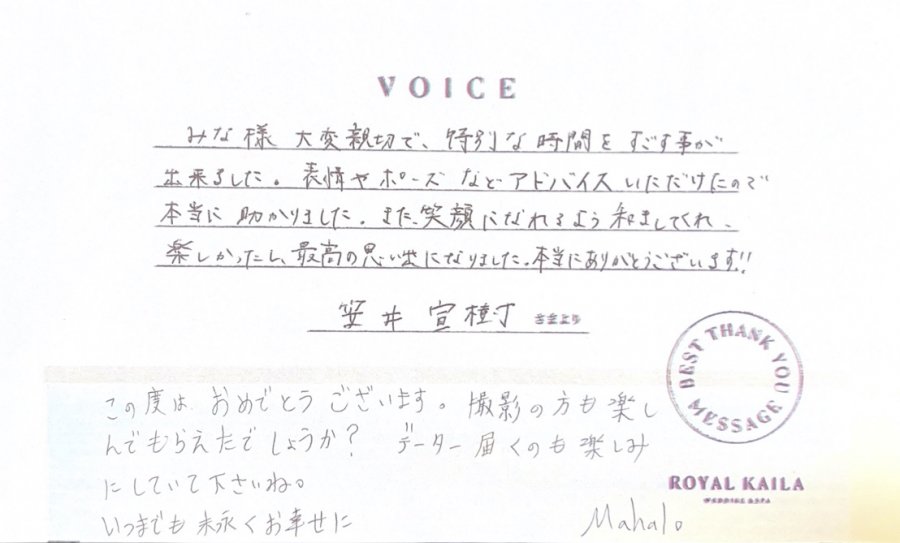 VOICE
みな様 大変親切で、特別な時間をすごす事が
出来ました。表情やポーズなどアドバイスいただけたので
本当に助かりました。また、笑顔になれるよう和ましてくれ、
楽しかったし、最高の思い出になりました。本当にありがとうございます!!
安井 宣樹 さまより
BEST THANK YOU MESSAGE
この度は おめでとうございます。撮影の方も楽し
んでもらえたでしょうか? データー届くのも楽しみ
にしていて下さいね。
ROYAL KAILA
いつまでも末永くお幸せに
Mahalo